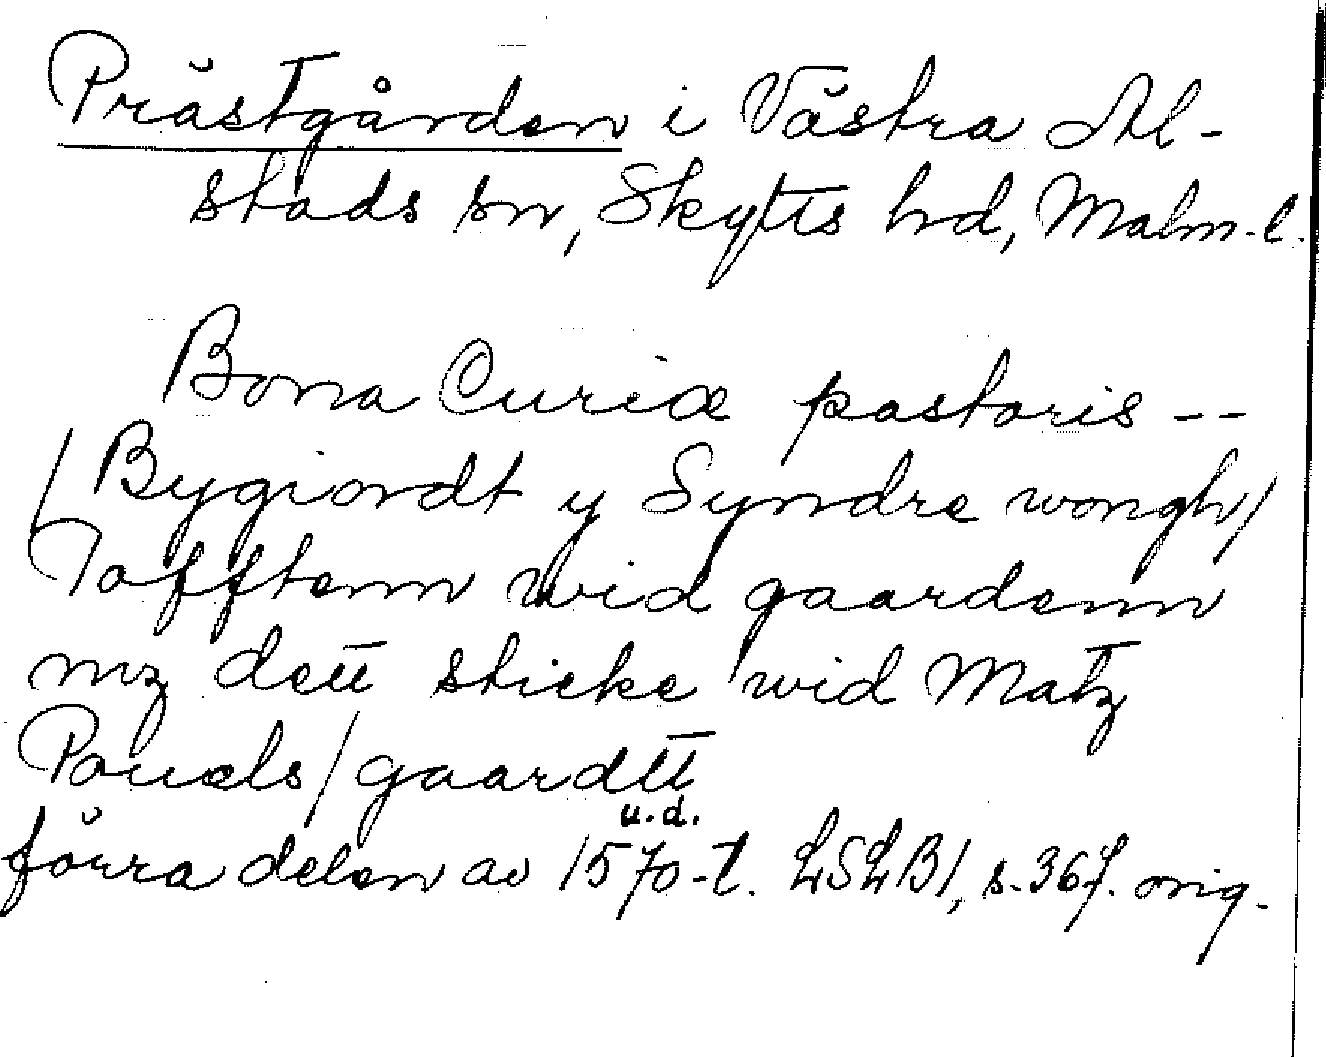 Prästgården i Västra Al-
stads sn, Skytts hd, Malm. l.
Bona Curiæ pastoris --
/Bygiordt y Syndre wongh/
Tofftenn wid gaardenn
mz dett sticke wid Matz
Pouels/gaardtt
u.d.
förra delen av 1570-t. LSLB1, s. 36f. orig.